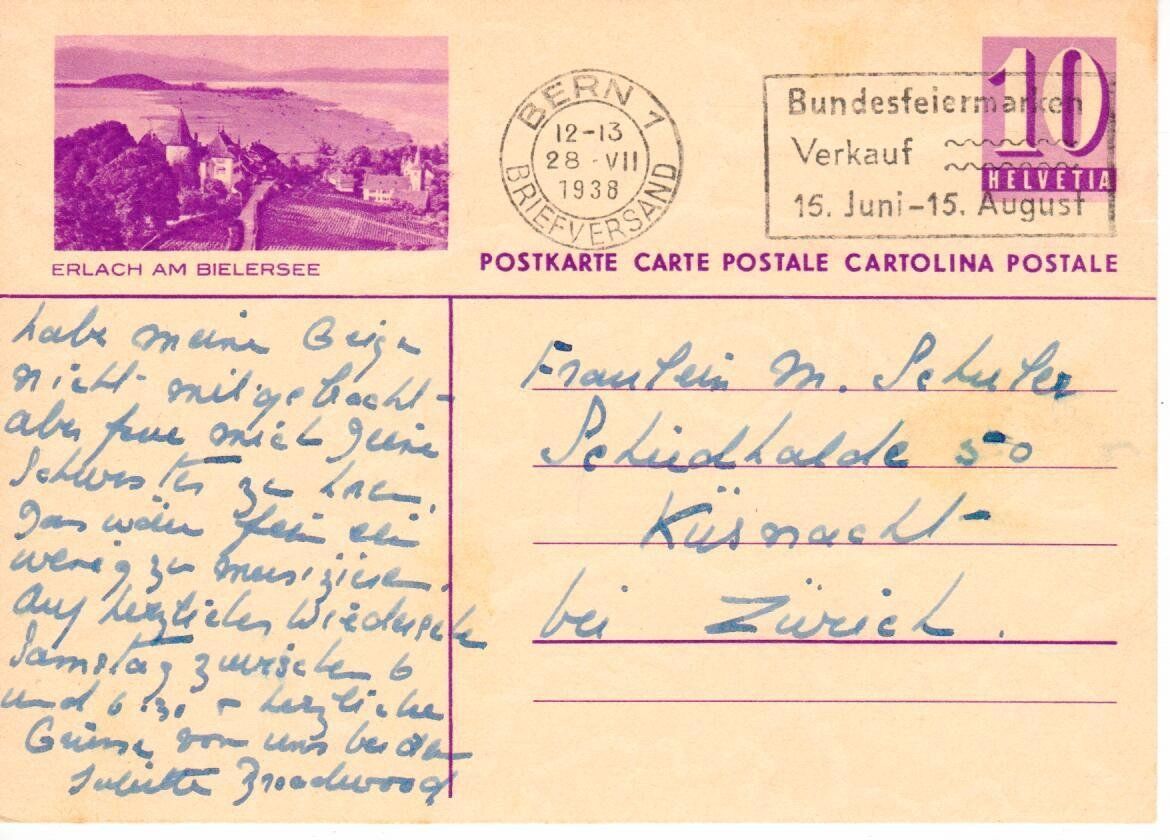 BERN 1
12-13
28·VII
1938
BRIEFVERSAND
Bundesfeiermarken
Verkauf
15. Juni-15. August
10
HELVETIA
ERLACH AM BIELERSEE
POSTKARTE CARTE POSTALE CARTOLINA POSTALE
habe meine Geige
nicht mitgebracht -
aber freue mich Deine
Schwester zu hören.
Das wäre fein ein
wenig zu musizieren.
Auf herzliches Wiedersehen
Samstag zwischen 6
und 6 - herzliche
Grüsse von uns beiden
Juliette Broadwood
Fraulein M. Schuler
Schiedhalde 50
Küsnacht
bei Zürich.